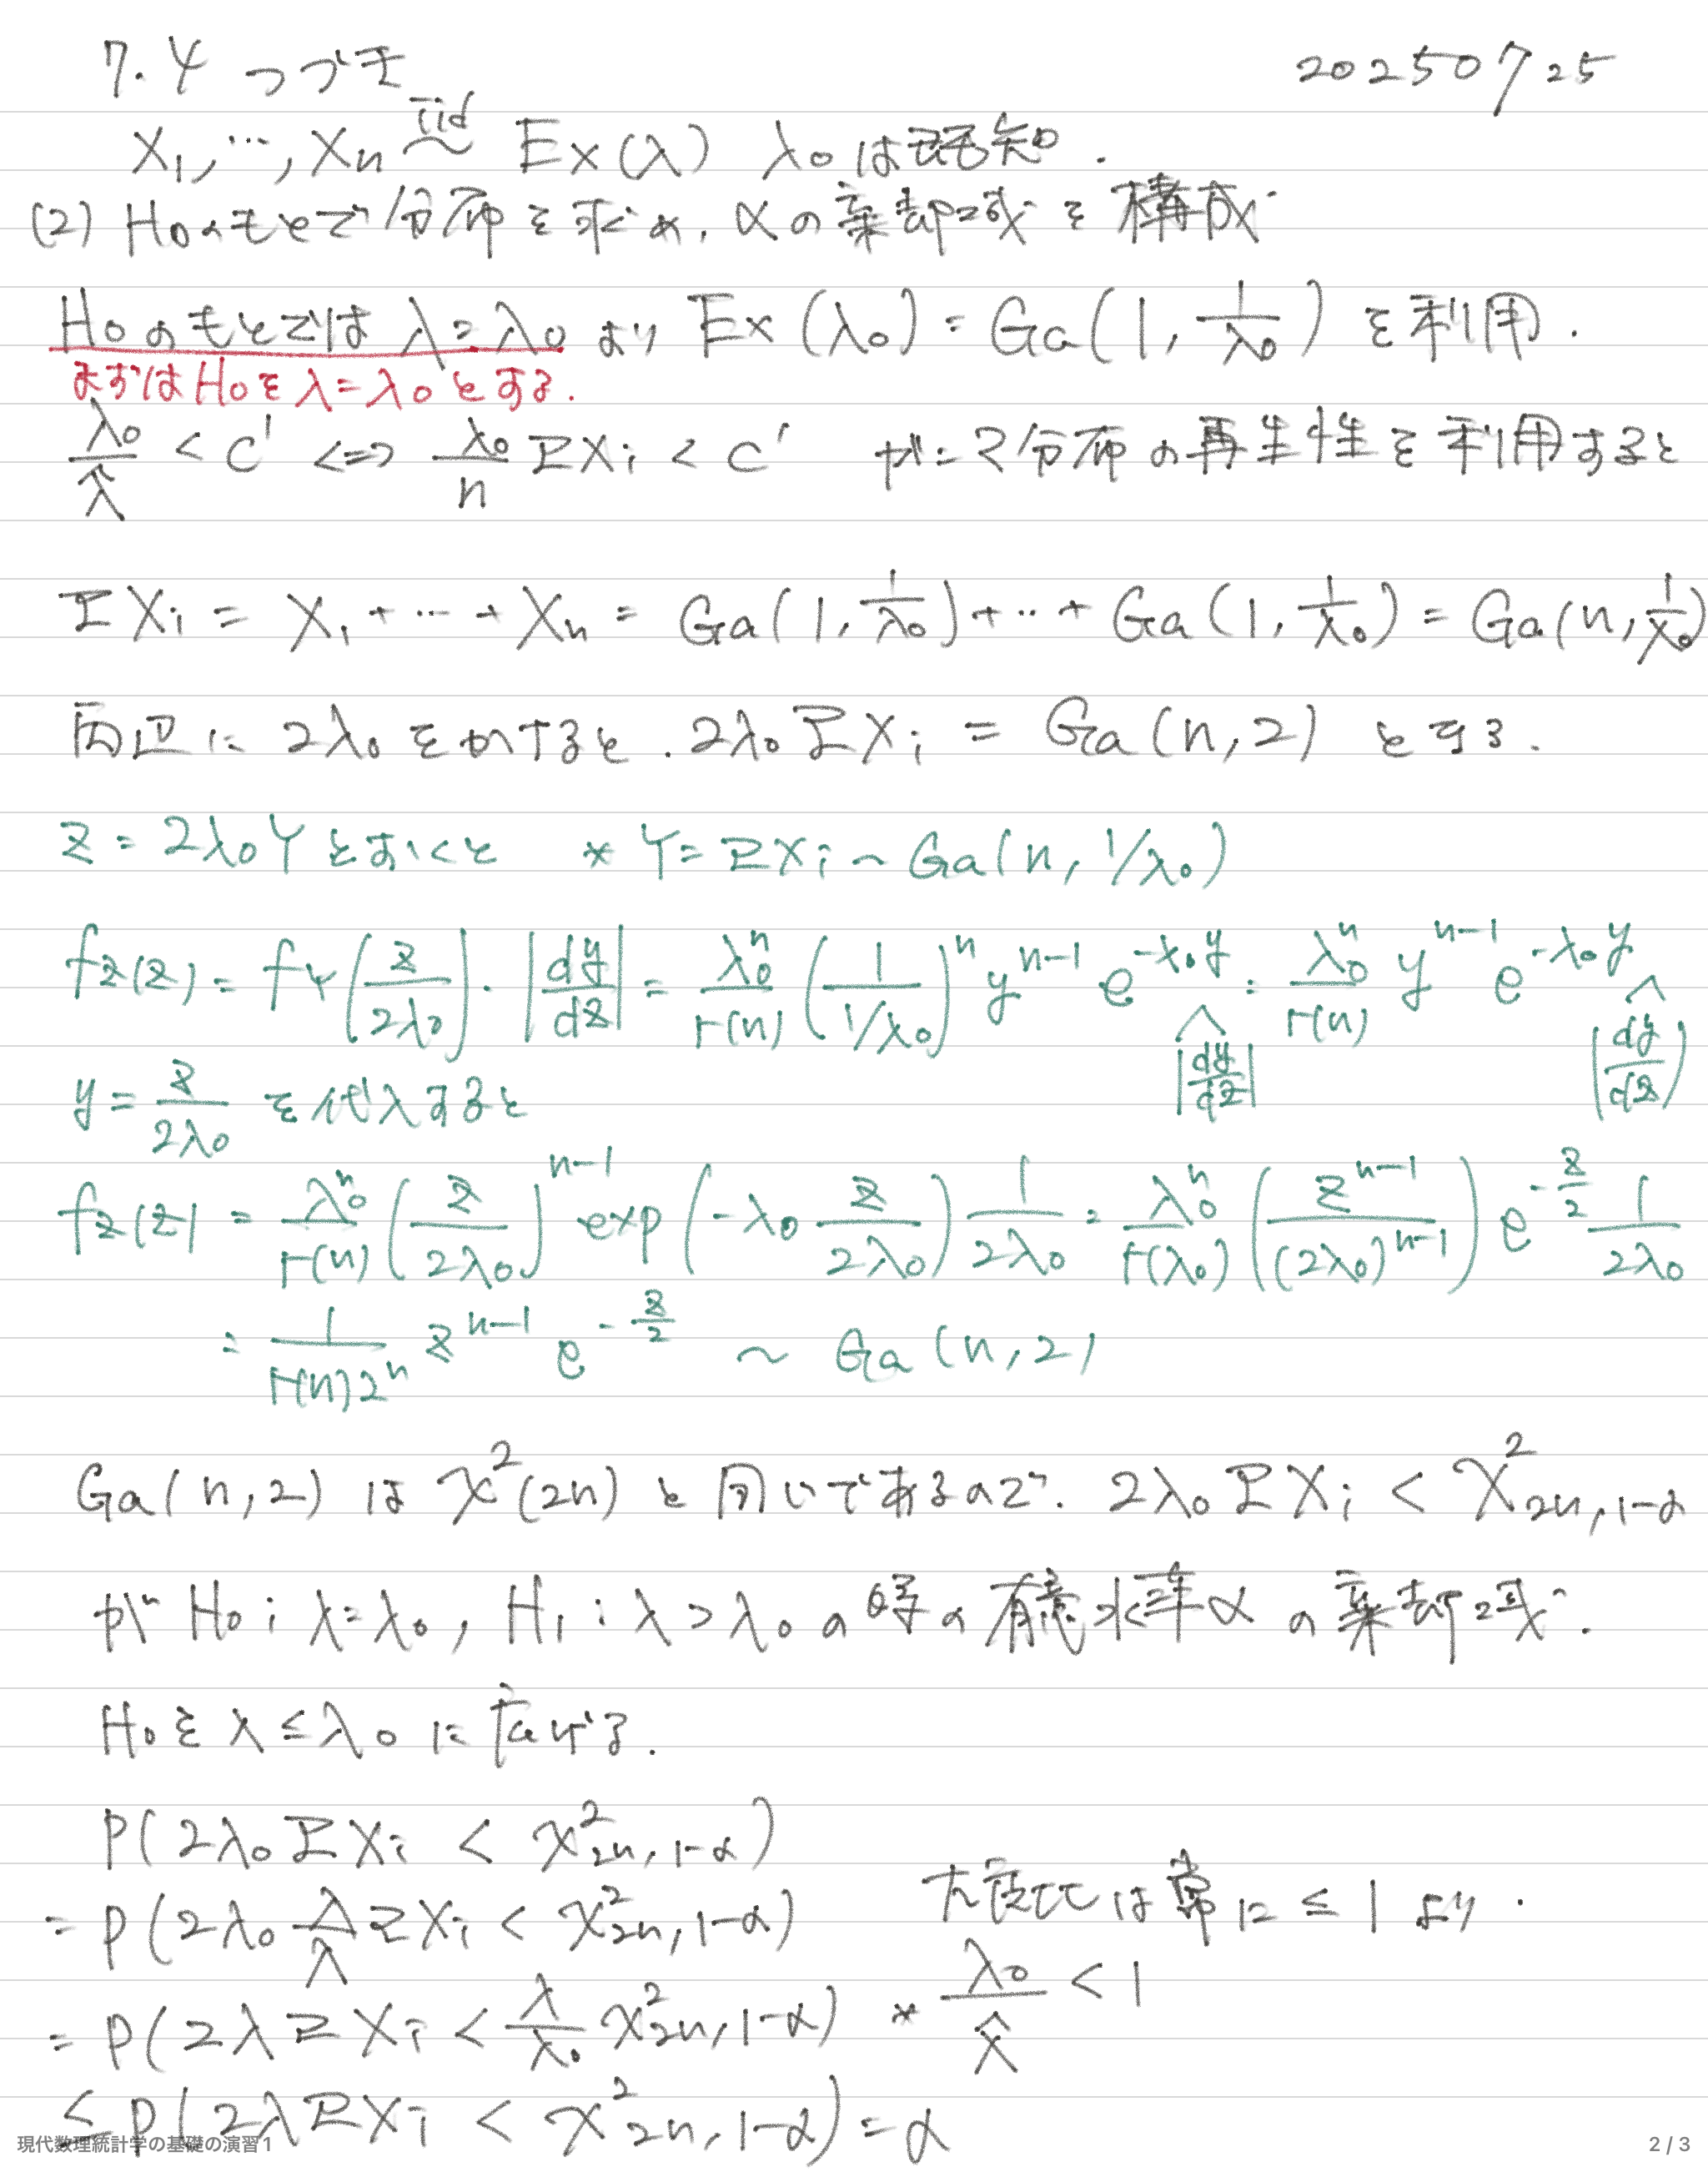 7.4 つづき 20250725
X₁, …, Xₙ iid~ Ex(λ) λ₀は既知.
(2) H₀のもとで分布を求め, αの棄却域を構成
H₀のもとでは λ=λ₀ より Ex(λ₀) = Ga(1, 1/λ₀) を利用.
まずは H₀を λ=λ₀ とする.
λ₀/λ̂ < C' <=> λ₀/n ΣXᵢ < C' ガンマ分布の再生性を利用すると
ΣXᵢ = X₁ + … + Xₙ = Ga(1, 1/λ₀) + … + Ga(1, 1/λ₀) = Ga(n, 1/λ₀)
両辺に 2λ₀ をかけると. 2λ₀ΣXᵢ = Ga(n, 2) とする.
Z = 2λ₀Y とおくと * Y = ΣXᵢ ~ Ga(n, 1/λ₀)
f_Z(z) = f_Y(z/2λ₀)・|dy/dz| = λ₀ⁿ/Γ(n) (1/(1/λ₀))ⁿ yⁿ⁻¹ e^(-λ₀y) |dy/dz| = λ₀ⁿ/Γ(n) yⁿ⁻¹ e^(-λ₀y) |dy/dz|
y = z/2λ₀ を代入すると
f_Z(z) = λ₀ⁿ/Γ(n) (z/2λ₀)ⁿ⁻¹ exp(-λ₀ z/2λ₀) 1/2λ₀ = λ₀ⁿ/Γ(λ₀) (zⁿ⁻¹/(2λ₀)ⁿ⁻¹) e^(-z/2) 1/2λ₀
= 1/Γ(n)2ⁿ zⁿ⁻¹ e^(-z/2) ~ Ga(n, 2)
Ga(n, 2) は χ²(2n) と同じであるので. 2λ₀ΣXᵢ < χ²₂ₙ,₁₋α
が H₀ ; λ=λ₀, H₁ : λ>λ₀ の時の有意水準α の棄却域.
H₀を λ≤λ₀ に広げる.
P(2λ₀ΣXᵢ < χ²₂ₙ,₁₋α)
= P(2λ₀ λ/λ ΣXᵢ < χ²₂ₙ,₁₋α) 尤度比は常に ≤ 1 より.
= P(2λΣXᵢ < λ/λ₀ χ²₂ₙ,₁₋α) * λ₀/λ̂ < 1
≤ P(2λΣXᵢ < χ²₂ₙ,₁₋α) = α
現代数理統計学の基礎の演習1 2 / 3